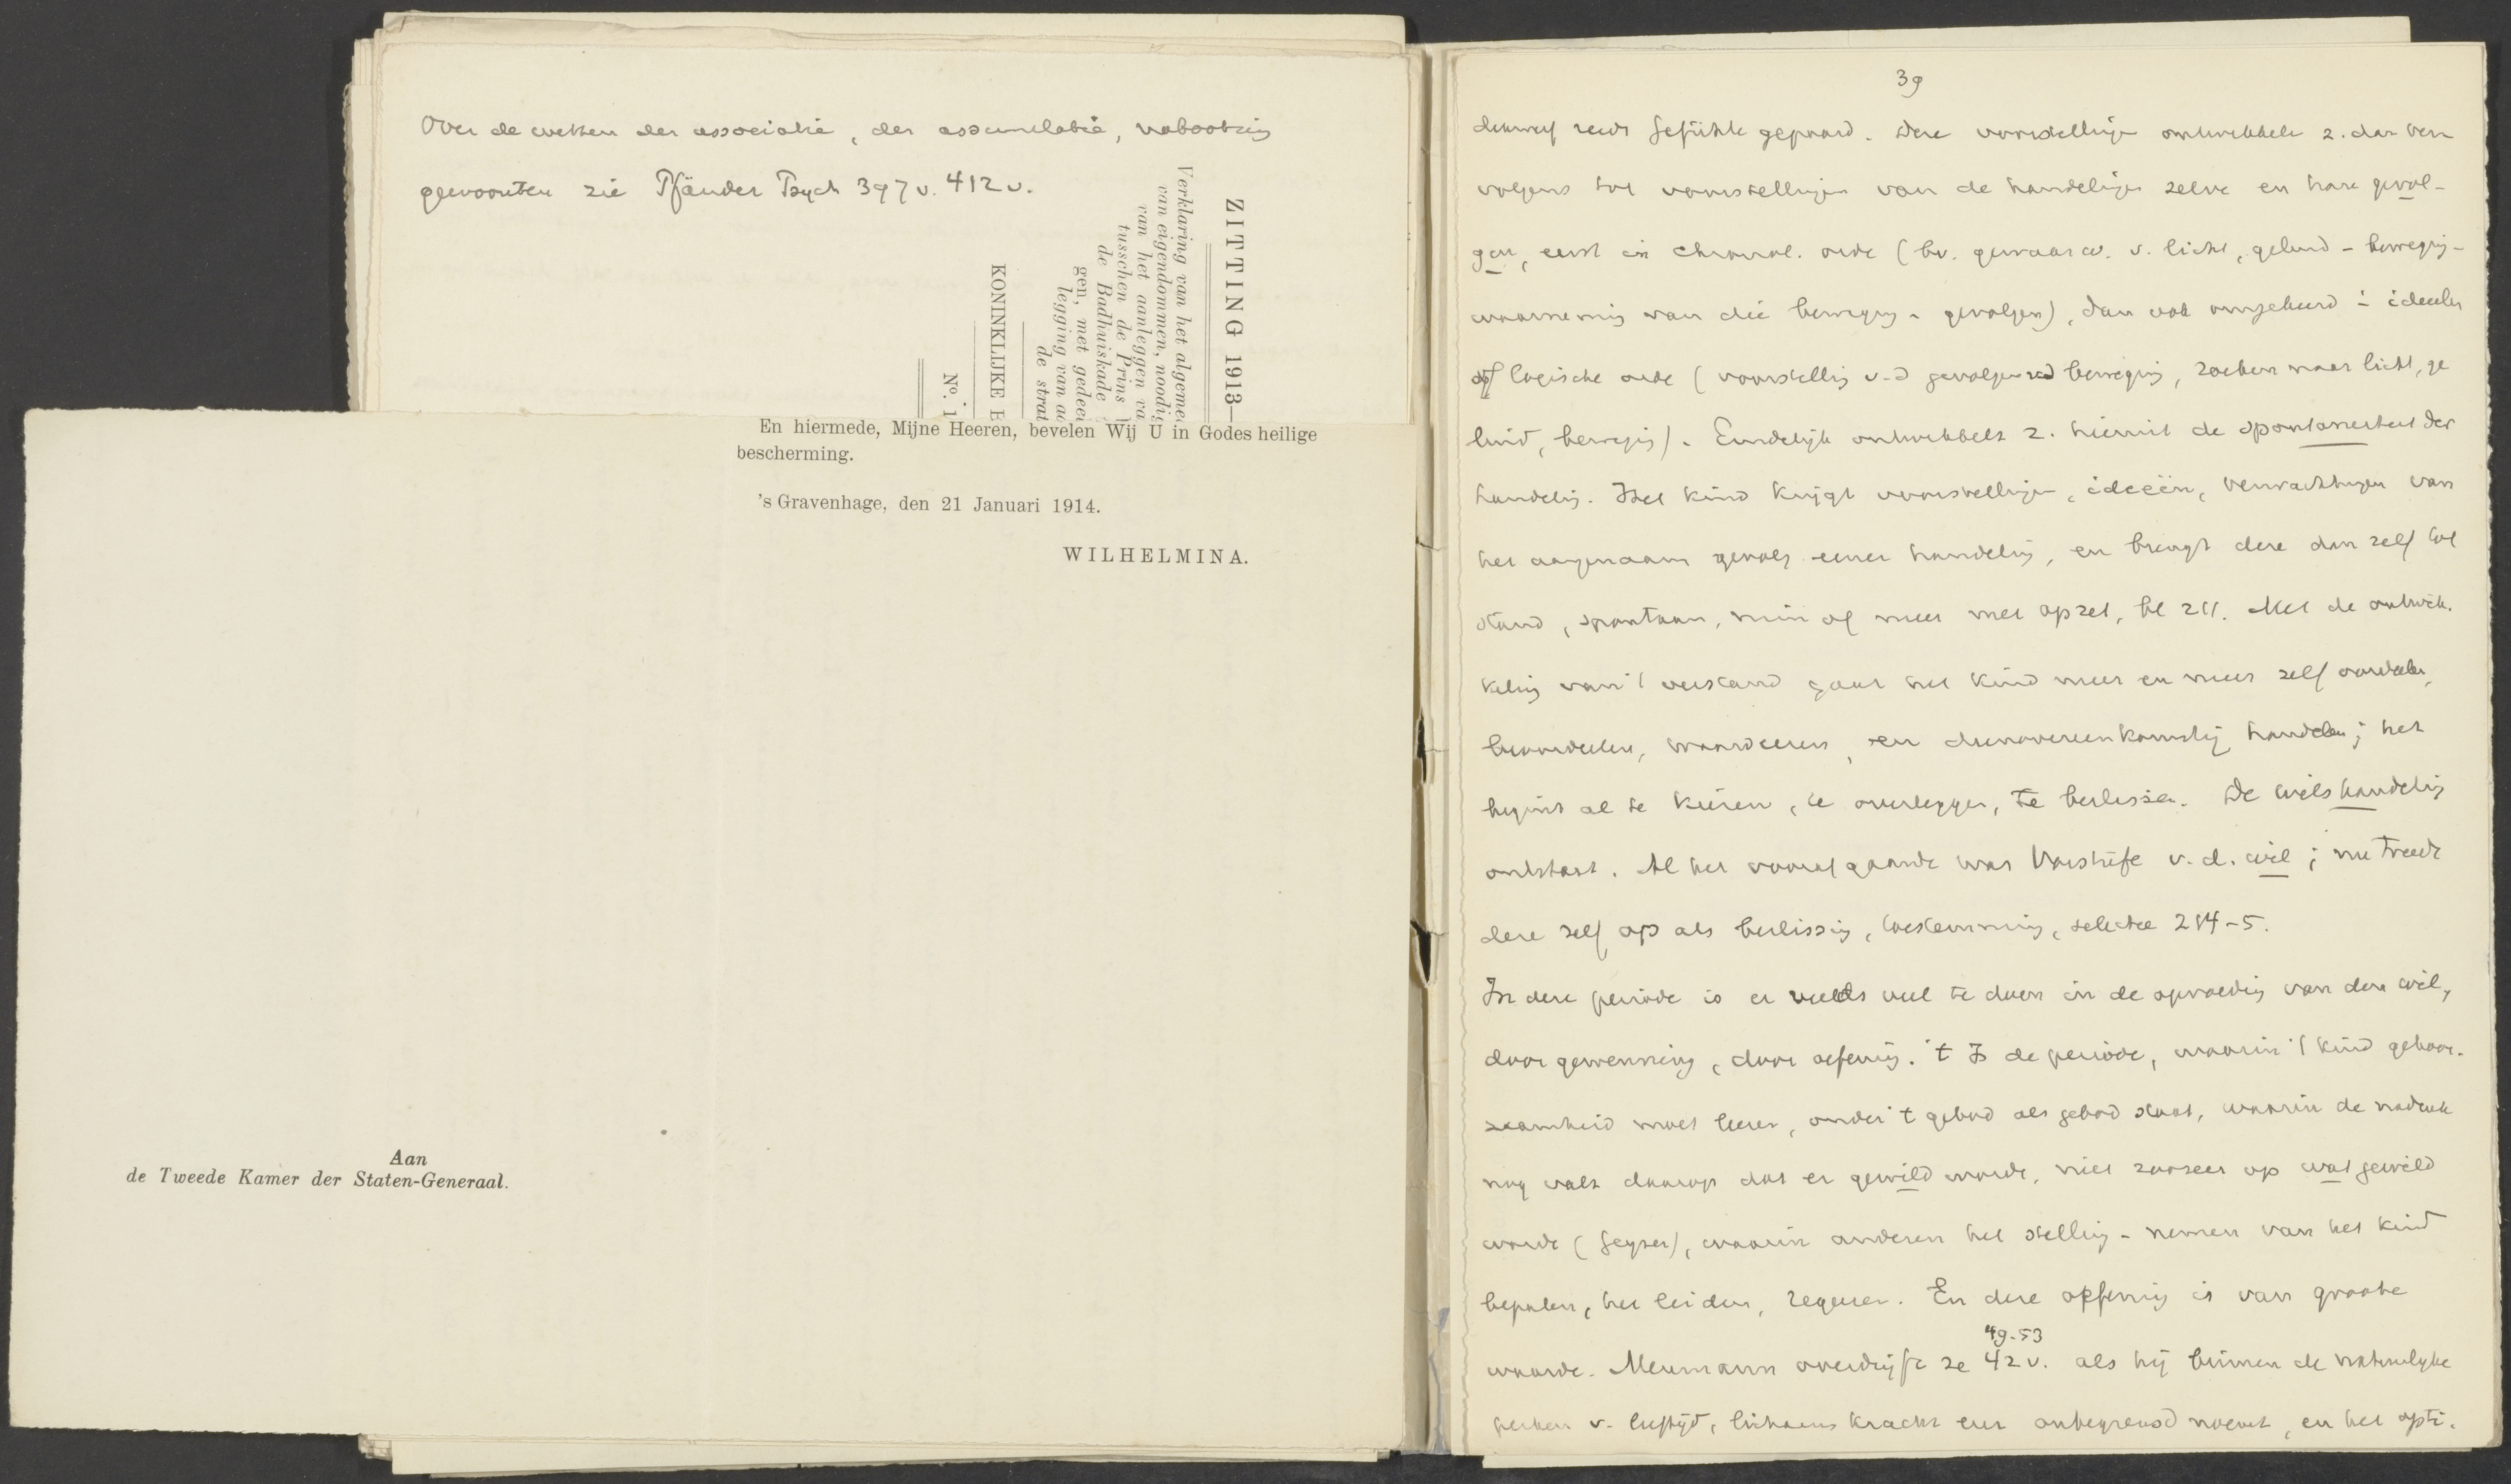 Over de wetten der associatie, der assimilatie, nabootsing
gewoonten zie Pfänder Psych 397 v. 412 v.
ZITTING 1913—
Verklaring van het algeme
van eigendommen, noodig
van het aanleggen va
tusschen de Prins
de Badhuiskade
gen, met gedeel
legging van
de strat
KONINKLIJKE
No. 1
En hiermede, Mijne Heeren, bevelen Wij U in Godes heilige
bescherming.
's Gravenhage, den 21 Januari 1914.
WILHELMINA.
Aan
de Tweede Kamer der Staten-Generaal.
39
reeds Gefühle gepaard. Deze voorstellingen ontwikkelen z. dan ver
volgens tot voorstellingen van de handelingen zelve en hare gevol-
gen, eerst in chronol. orde (bv. gewaarw. v. licht, geluid - beweging -
waarneming van die beweging - gevolgen), dan ook omgekeerd in ideeler
of logische orde (voorstelling v. d gevolgen v d beweging, zoeken naar licht, ge
luid, beweging). Eindelijk ontwikkelt z. hieruit de spontaneiteit der
handeling. Het kind krijgt voorstellingen, ideeën, verwachtingen van
het aangenaam gevolg eener handeling, en brengt deze dan zelf tot
stand, spontaan, min of meer met opzet, bl 211. Met de ontwik-
keling van 't verstand gaat het kind meer en meer zelf oordeelen,
beoordeelen, waardeeren, en dienovereenkomstig handelen; het
begint al te kiezen, te overleggen, te beslissen. De wilshandeling
ontstaat. Al het voorafgaande was Vorstufe v. d. wil; nu treedt
deze zelf op als beslissing, toestemming, selectie 214-5.
In deze periode is er reeds veel te doen in de opvoeding van den wil,
door gewenning, door oefening. 't Is de periode, waarin 't kind gehoor-
zaamheid moet leeren, onder 't gebod als gebod staat, waarin de nadruk
nog valt daarop dat er gewild worde, niet zoozeer op wat gewild
worde (Geyser), waarin anderen het stelling-nemen van het kind
bepalen, het leiden, regeeren. En deze oefening is van groote
49-53
waarde. Meumann overdrijft ze 42 v. als hij binnen de natuurlijke
perken v. leeftijd, lichaams kracht een onbegrensd noemt, en het opti-